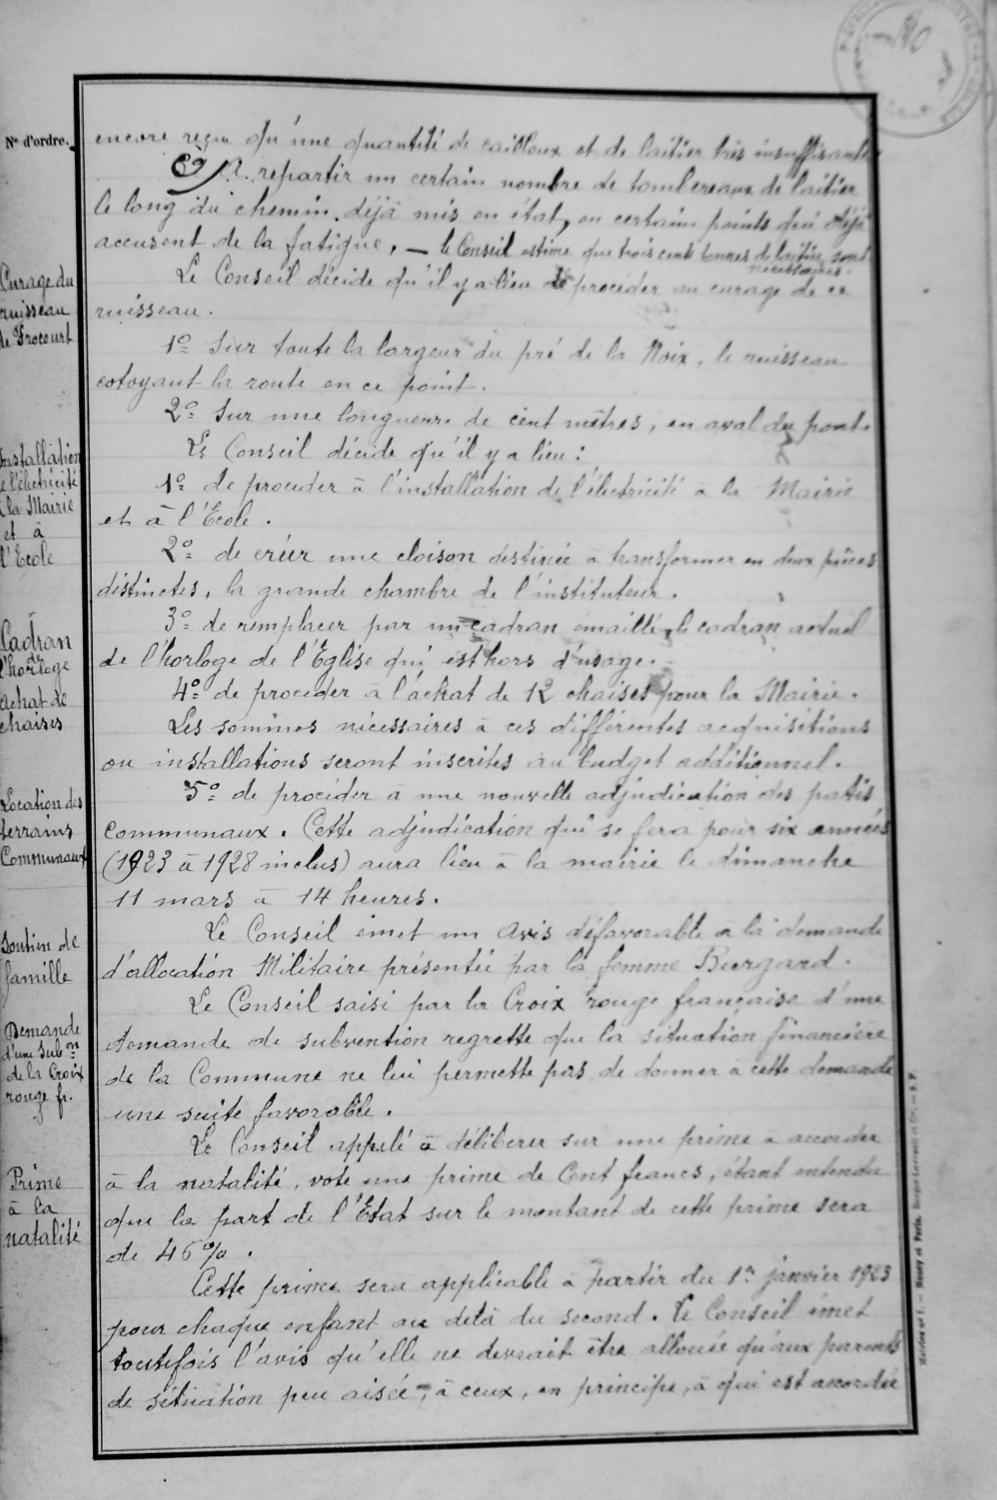 N° d'ordre.
encore reçu qu'une quantité de cailloux et de laitier très insuffisante
C/ A repartir un certain nombre de tombereaux de laitier
le long du chemin déjà mis en état, en certains points qui déjà
accusent de la fatigue. — le Conseil estime que trois cents tonnes de laitier sont
nécessaires.
Curage du
ruisseau
de Frocourt
Le Conseil décide qu'il y a lieu de procéder au curage de ce
ruisseau.
1° Sur toute la largeur du pré de la Noix, le ruisseau
cotoyant la route en ce point.
2° Sur une longueur de cent mètres, en aval du pont.
Installation
de l'électricité
à la Mairie
et à
l'Ecole
Le Conseil décide qu'il y a lieu :
1° de procéder à l'installation de l'électricité à la Mairie
et à l'Ecole.
2° de créer une cloison destinée à transformer en deux pièces
distinctes, la grande chambre de l'instituteur.
Cadran
de
l'horloge
3° de remplacer par un cadran émaillé, le cadran actuel
de l'horloge de l'Eglise qui est hors d'usage.
achat de
chaises
4° de procéder à l'achat de 12 chaises pour la Mairie.
Les sommes nécessaires à ces différentes acquisitions
ou installations seront inscrites au budget additionnel.
Location des
terrains
Communaux
5° de procéder à une nouvelle adjudication des patis
communaux. Cette adjudication qui se fera pour six années
(1923 à 1928 inclus) aura lieu à la mairie le dimanche
11 mars à 14 heures.
Soutien de
famille
Le Conseil émet un avis défavorable à la demande
d'allocation Militaire présentée par la femme Burgard.
Demande
d'une Sub on
de la Croix
rouge fr.
Le Conseil saisi par la Croix rouge française d'une
demande de subvention regrette que la situation financière
de la Commune ne lui permette pas de donner à cette demande
une suite favorable.
Prime
à la
natalité
Le Conseil appelé à délibérer sur une prime à accorder
à la natalité, vote une prime de Cent francs, étant entendu
que la part de l'Etat sur le montant de cette prime sera
de 46%.
Cette prime sera applicable à partir du 1er janvier 1923
pour chaque enfant au delà du second. Le Conseil émet
toutefois l'avis qu'elle ne devrait être allouée qu'aux parents
de situation peu aisée, à ceux, en principe, à qui est accordée